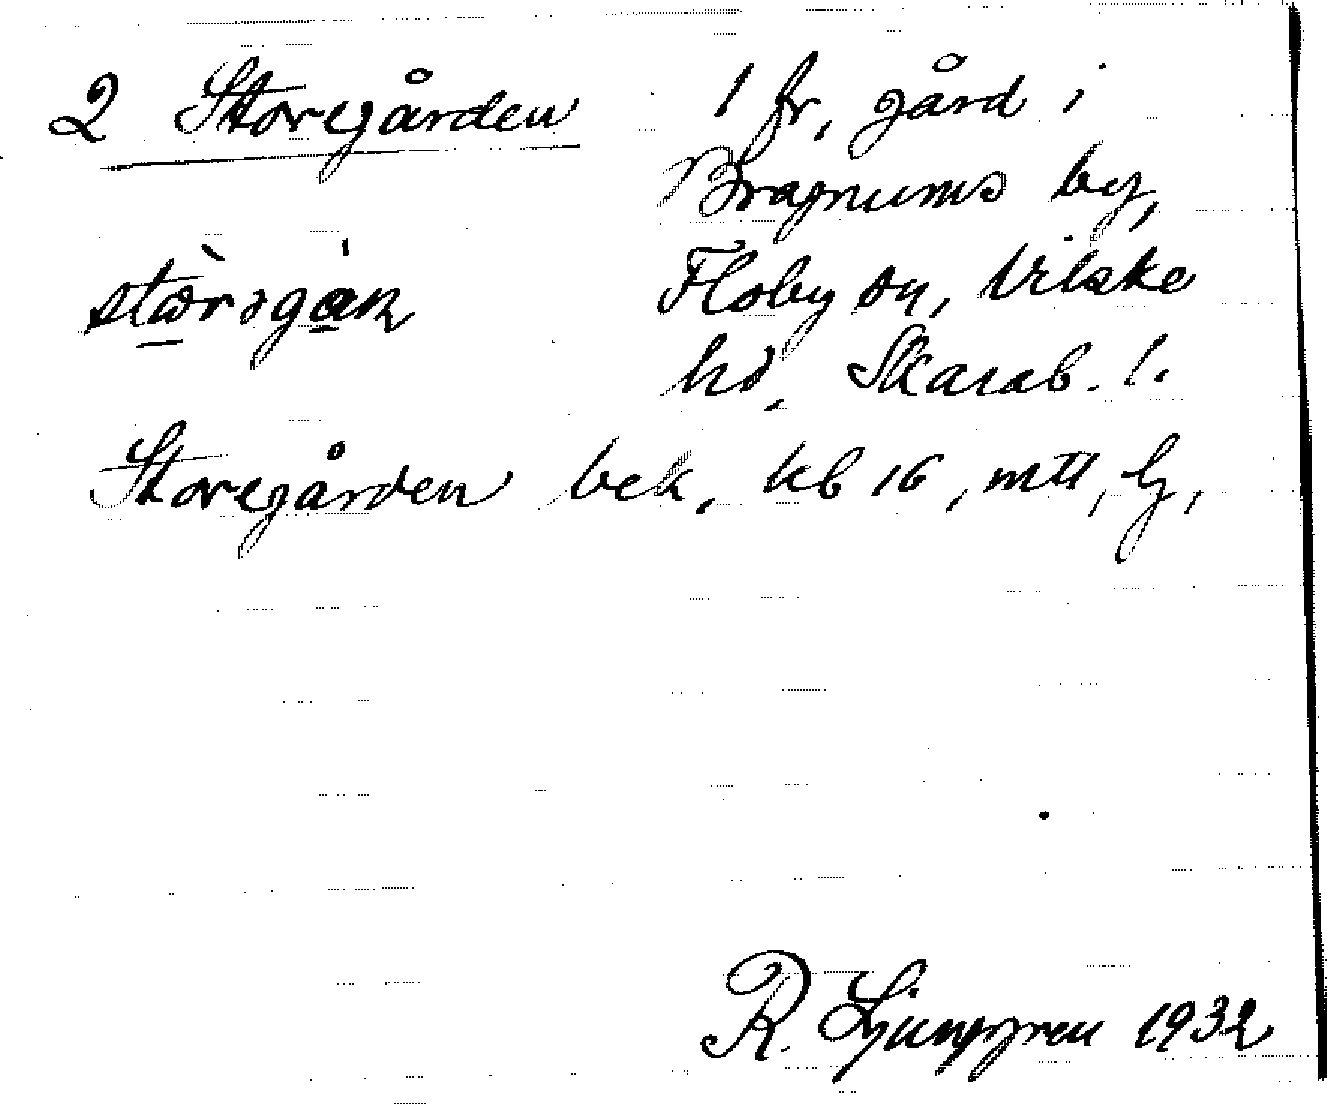 2 Storegården 1 fr, gård i
Bragnums by,
Floby sn, Vilske
hd, Skarab. l.
Storegården bek, kb 16, mtl, Lj,
R. Ljunggren 1932